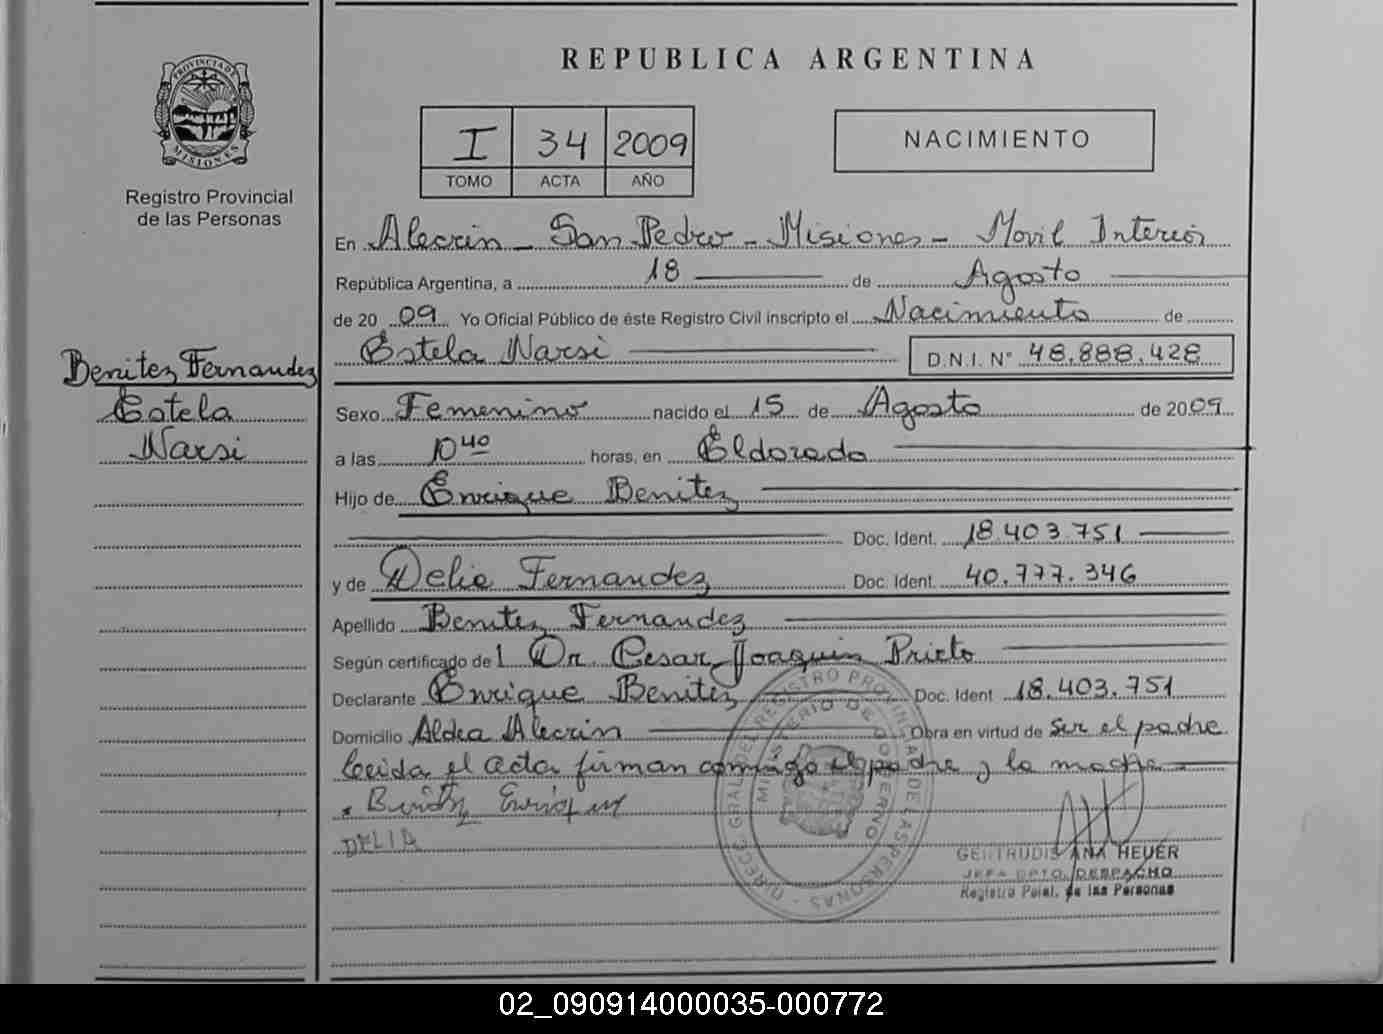 REPUBLICA ARGENTINA
PROVINCIA DE
MISIONES
Registro Provincial
de las Personas
I 34 2009
TOMO ACTA AÑO
NACIMIENTO
En Alecrin - San Pedro - Misiones - Movil Interior
República Argentina, a 18 de Agosto
de 20 09 Yo Oficial Público de éste Registro Civil inscripto el Nacimiento de
Estela Narsi D.N.I. N° 48.888.428
Benitez Fernandez
Estela
Narsi
Sexo Femenino nacido el 15 de Agosto de 2009
a las 10 40 horas, en Eldorado
Hijo de Enrique Benitez
Doc. Ident. 18.403.751
y de Delia Fernandez Doc. Ident. 40.777.346
Apellido Benitez Fernandez
Según certificado de l Dr. Cesar Joaquin Prieto
Declarante Enrique Benitez Doc. Ident 18.403.751
Domicilio Aldea Alecrin Obra en virtud de Ser el padre
Leida el acta firman conmigo el padre y la madre
Benitez Enrique
DELIA
GERTRUDIS ANA HEUER
JEFA DPTO. DESPACHO
Registro Pcial. de las Personas
02_090914000035-000772